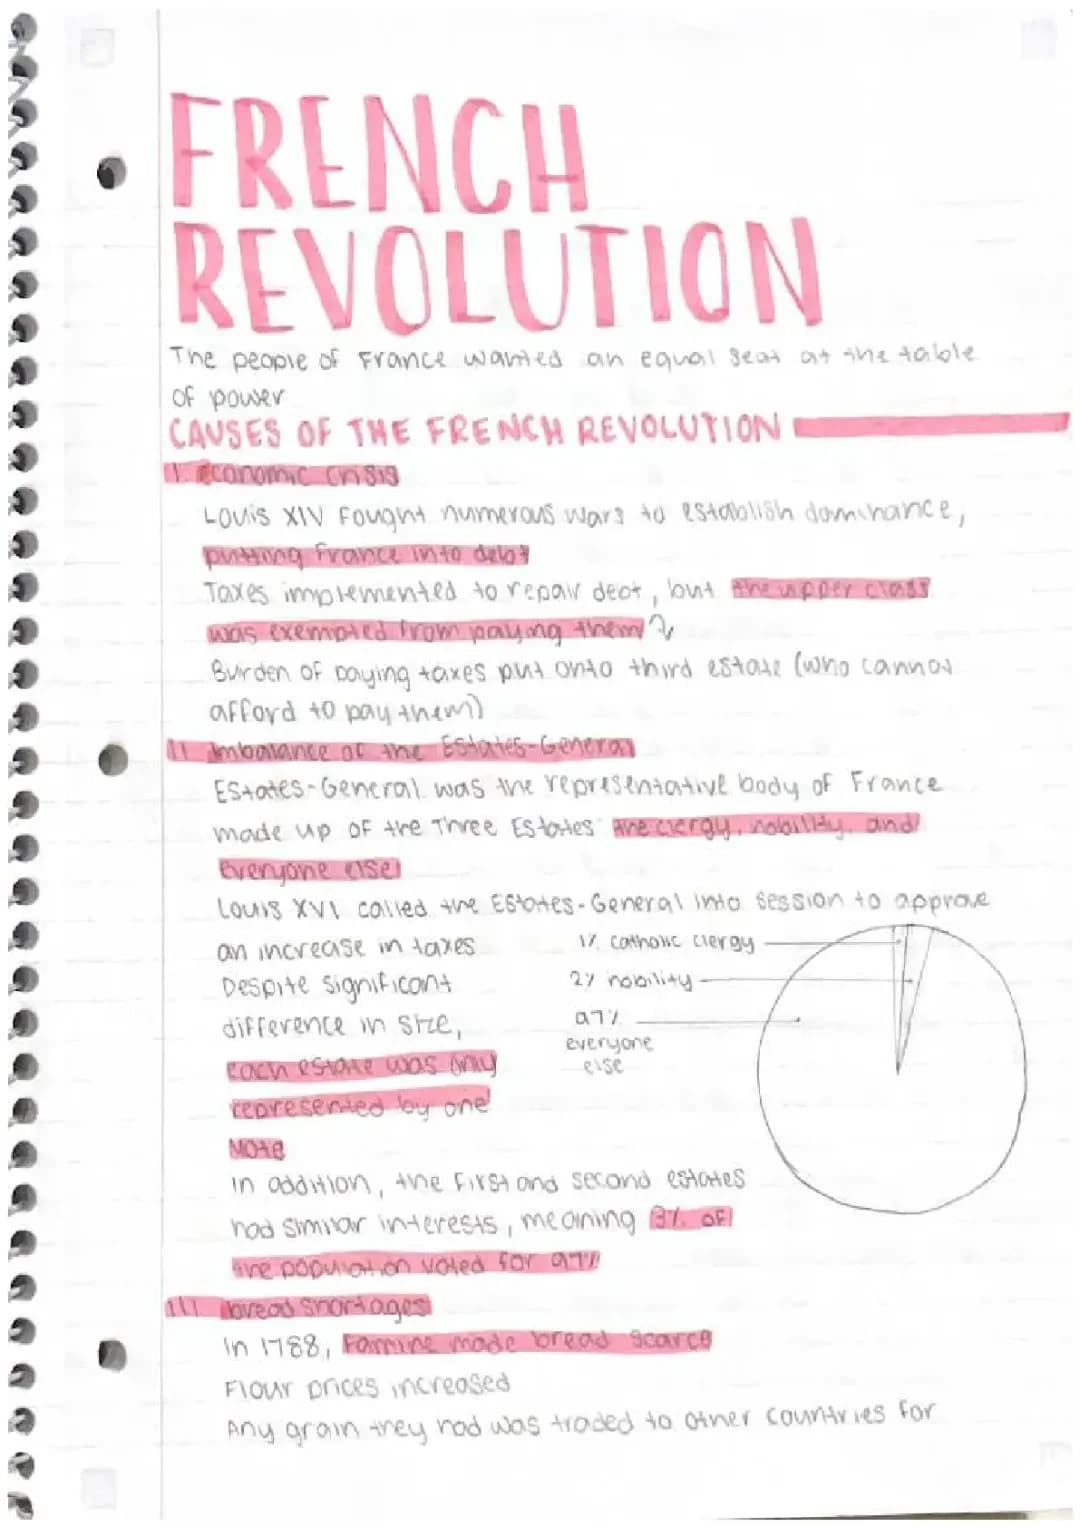 FRENCH
REVOLUTION
The people of France wanted an equal seat at the table
of power
CAUSES OF THE FRENCH REVOLUTION
I. Economic crisis
Louis XIV fought numerous wars to establish dominance,
putting France into debt
Taxes implemented to repair debt, but the upper class
was exempted from paying them
Burden of paying taxes put onto third estate (who cannot
afford to pay them)
II. Imbalance of the Estates-General
Estates-General was the representative body of France
made up of the Three Estates: the clergy, nobility, and
everyone else
Louis XVI called the Estates-General into session to approve
an increase in taxes
1% catholic clergy
Despite significant
2% nobility
difference in size,
97%
everyone
else
each estate was only
represented by one
vote
In addition, the first and second estates
had similar interests, meaning 3% of
the population voted for 97%
III. bread shortages
In 1788, Famine made bread scarce
Flour prices increased
Any grain they had was traded to other countries for